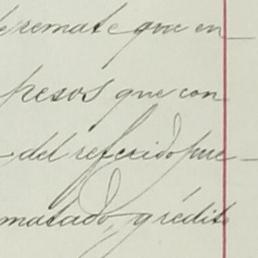 de remate que en
pesos que con
del referido pre
matado, y rédito